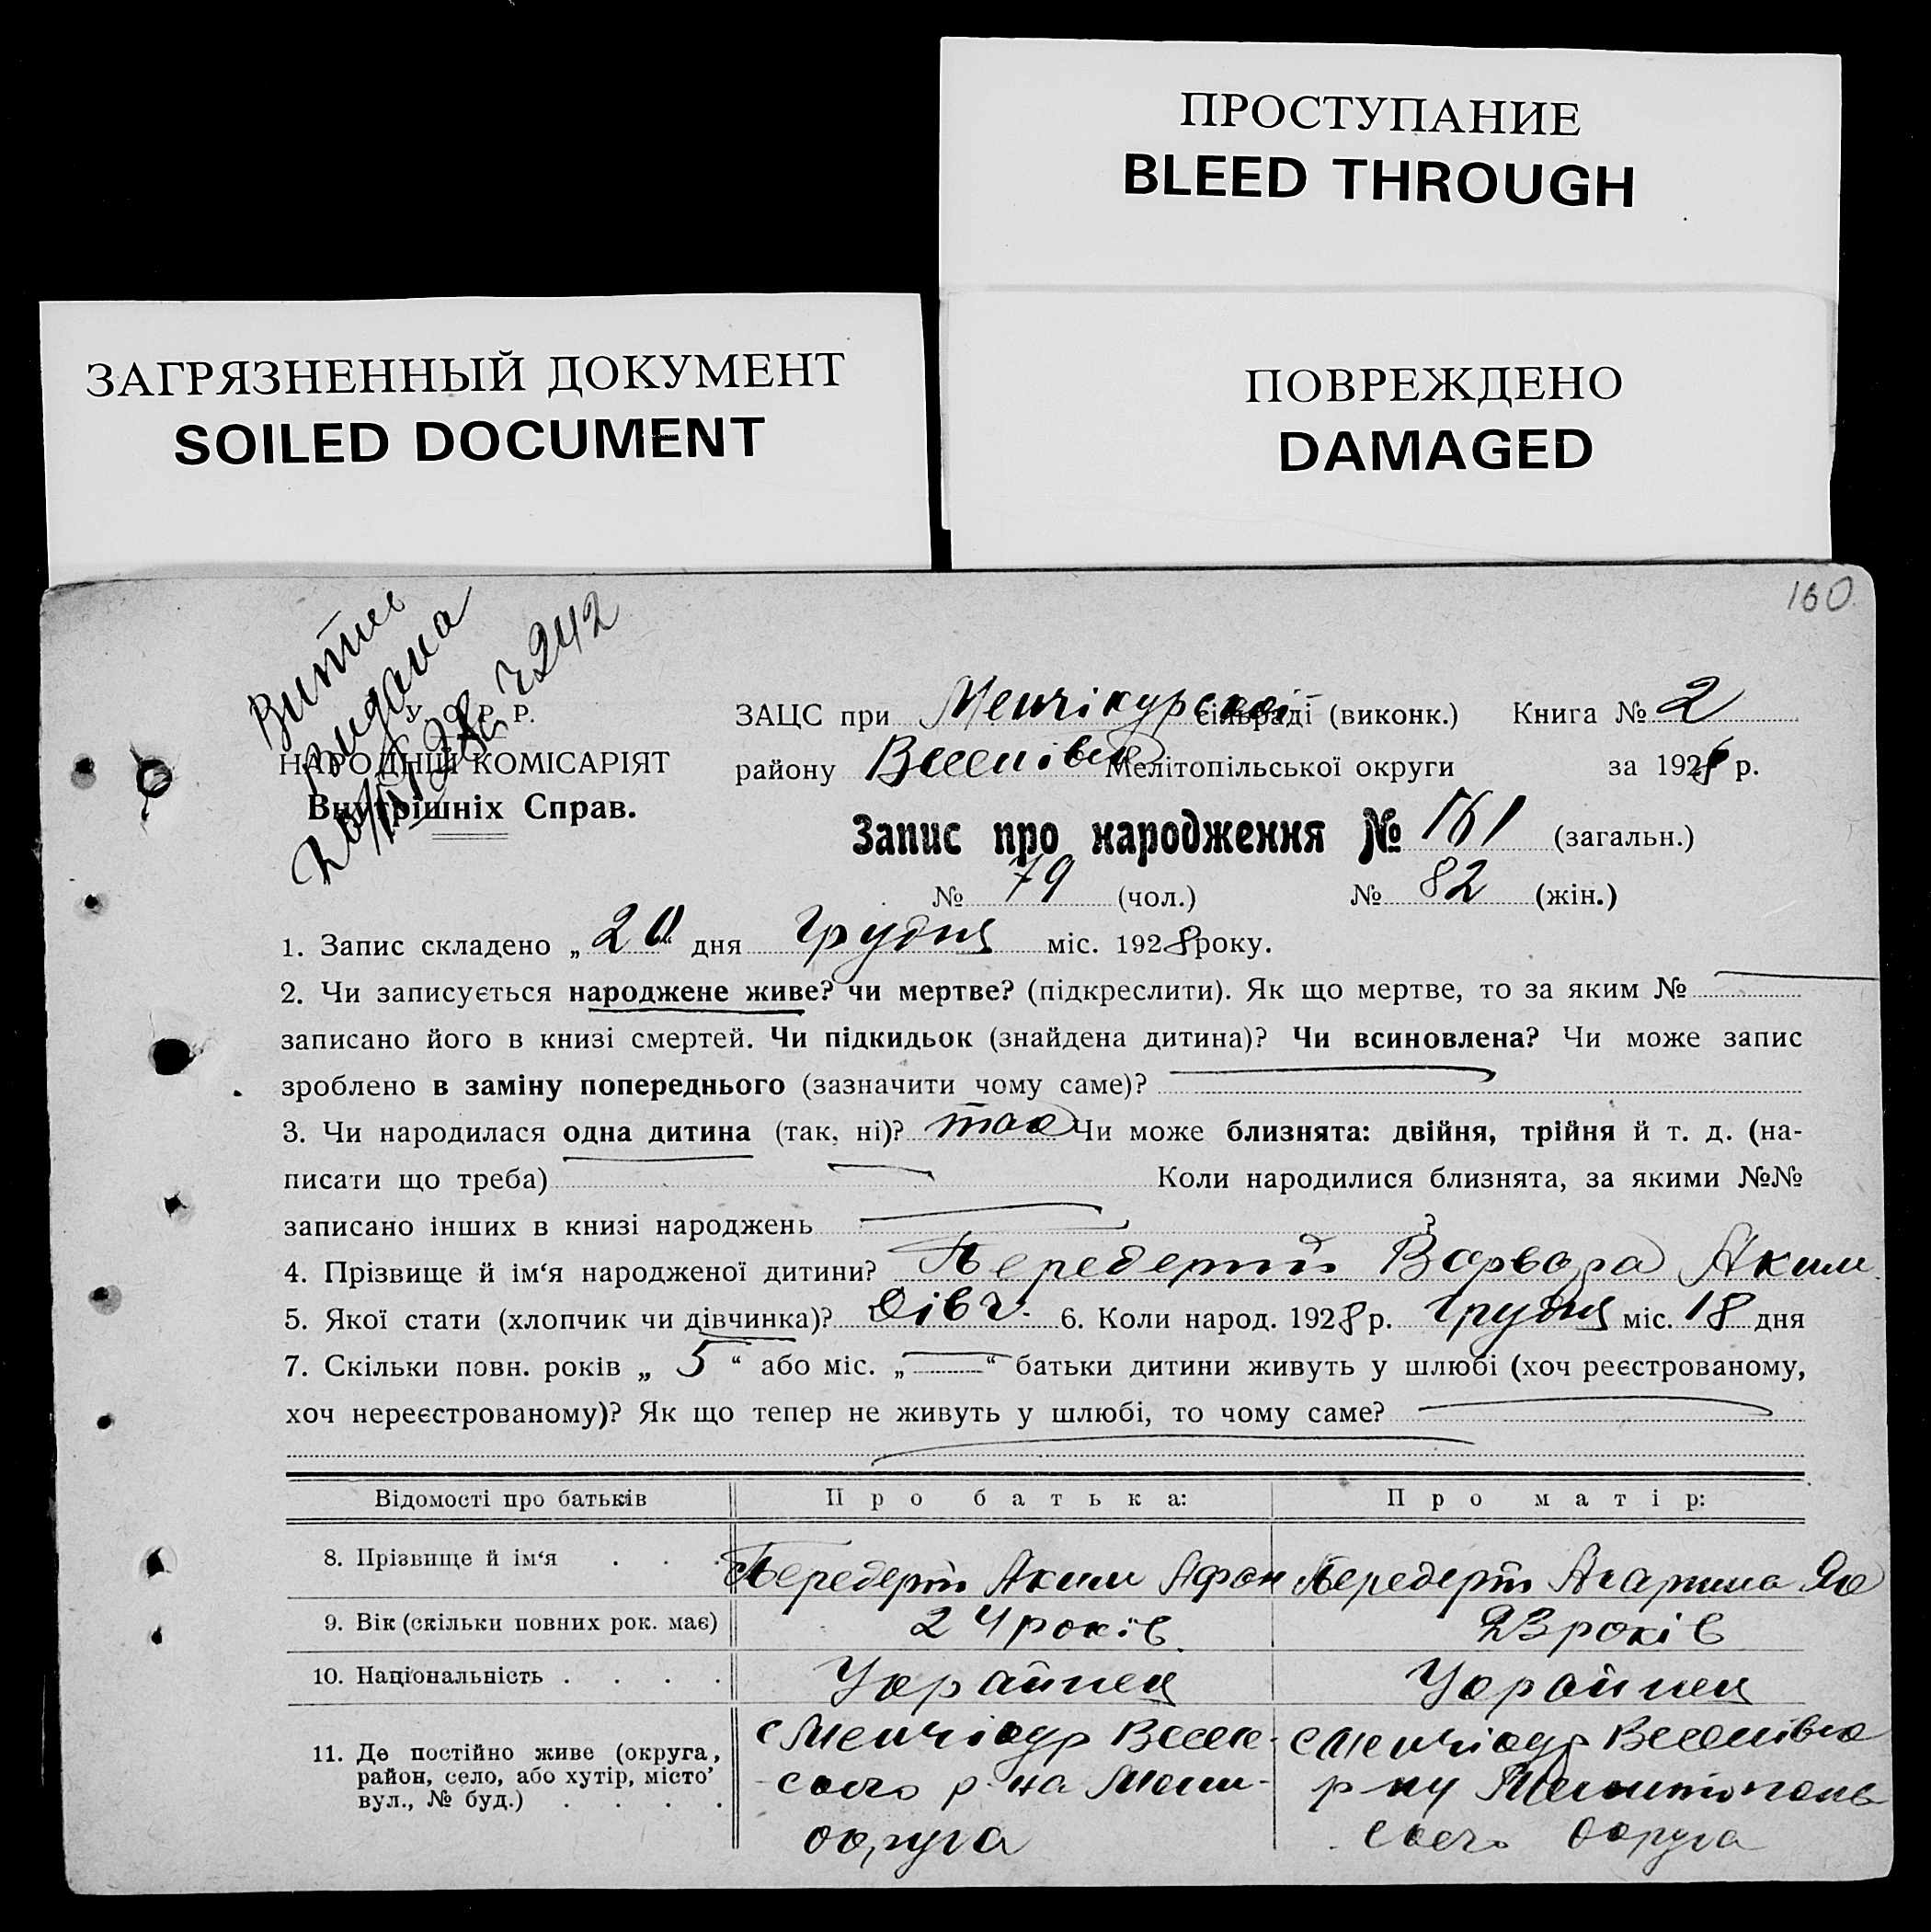 ПРОСТУПАНИЕ
BLEED THROUGH
ЗАГРЯЗНЕННЫЙ ДОКУМЕНТ
SOILED DOCUMENT
ПОВРЕЖДЕНО
DAMAGED
160
Витяг
видана
Ч 242
У. С. Р. Р.
НАРОДНІЙ КОМІСАРІЯТ
Внутрішніх Справ.
ЗАЦС при Менчікурскої сільраді (виконк.) Книга № 2
району Веселівськ Мелітопільської округи за 1928 р.
Запис про народження № 161 (загальн.)
№ 79 (чол.) № 82 (жін.)
1. Запис складено „20“ дня Грудня міс. 1928 року.
2. Чи записується народжене живе? чи мертве? (підкреслити). Як що мертве, то за яким №
записано його в книзі смертей. Чи підкидьок (знайдена дитина)? Чи всиновлена? Чи може запис
зроблено в заміну попереднього (зазначити чому саме)?
3. Чи народилася одна дитина (так, ні)? так Чи може близнята: двійня, трійня й т. д. (на-
писати що треба) Коли народилися близнята, за якими №№
записано інших в книзі народжень ?
4. Прізвище й ім‘я народженої дитини? Передерій Варвара Аким.
5. Якої стати (хлопчик чи дівчинка)? Дівч. 6. Коли народ. 1928 р. Грудня міс. 18 дня
7. Скільки повн. років „ 5 “ або міс. „ — “ батьки дитини живуть у шлюбі (хоч реєстрованому,
хоч нереєстрованому)? Як що тепер не живуть у шлюбі, то чому саме?
Відомості про батьків Про батька: Про матір:
8. Прізвище й ім‘я . . . Передерій Аким Афон Передерій
9. Вік (скільки повних рок. має) 24 років 23 років
10. Національність . . . . Українец Українец
11. Де постійно живе (округа, с Менчікур Весел- с Менчікур Веселівск
район, село, або хутір, місто, ского р-на Мели- р-ну Мелитополь
вул., № буд.) . . . . округа ского округа